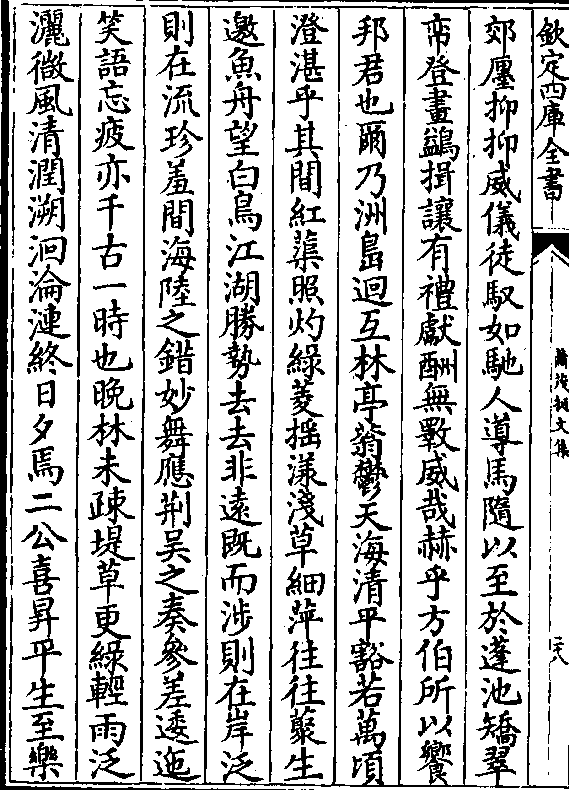 欽定四庫全書
蕭茂挺文集
十八
郊廛抑抑威儀徒馭如馳人導馬隨以至於蓬池矯翠
帟登畫鷁揖讓有禮獻酬無斁威哉赫乎方伯所以饗
邦君也爾乃洲島迴互林亭蓊鬱天海清平豁若萬頃
澄湛乎其間紅蕖照灼綠菱揺漾淺草細萍往往藂生
邀魚舟望白鳥江湖勝勢去去非遠既而涉則在岸泛
則在流珍羞間海陸之錯妙舞應荆吴之奏參差逶迤
笑語忘疲亦千古一時也晚林未疎堤草更綠輕雨泛
灑微風清潤溯洄淪漣終日夕焉二公喜昇平生至樂